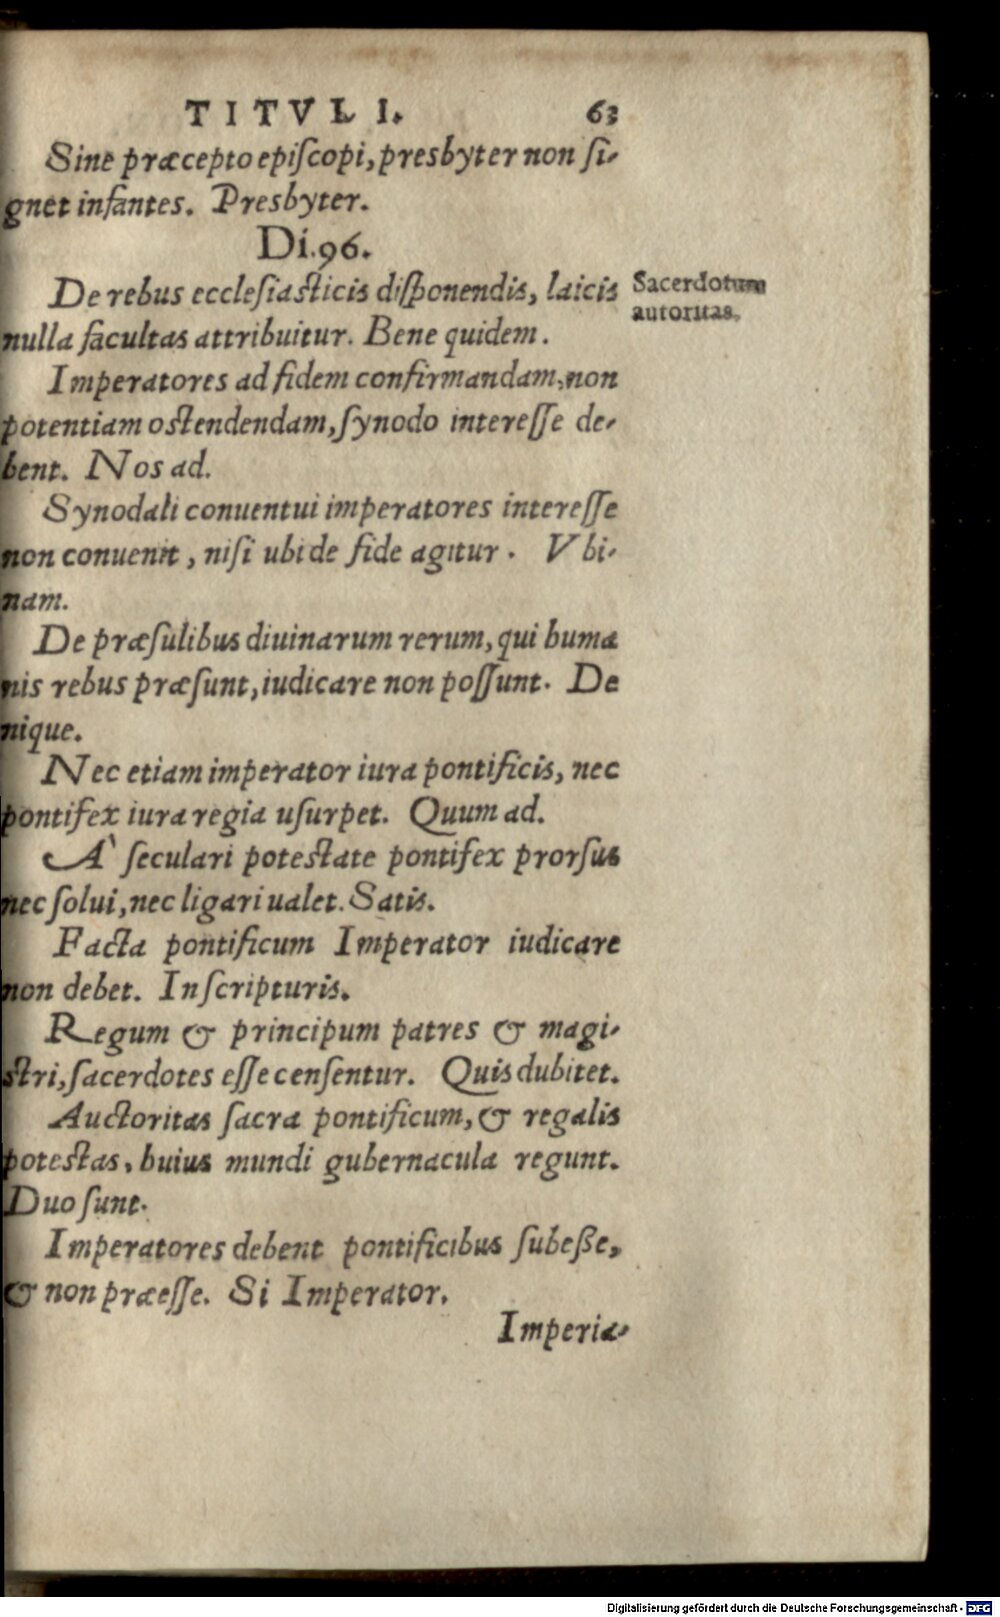 TITVLI. 63
Sine præcepto episcopi, presbyter non si-
gnet infantes. Presbyter.
Di.96.
De rebus ecclesiasticis disponendis, laicis
nulla facultas attribuitur. Bene quidem.
Sacerdotum
autoritas.
Imperatores ad fidem confirmandam, non
potentiam ostendendam, synodo interesse de-
bent. Nos ad.
Synodali conuentui imperatores interesse
non conuenit, nisi ubi de fide agitur. Vbi-
nam.
De præsulibus diuinarum rerum, qui huma
nis rebus præsunt, iudicare non possunt. De
nique.
Nec etiam imperator iura pontificis, nec
pontifex iura regia usurpet. Quum ad.
A` seculari potestate pontifex prorsus
nec solui, nec ligari ualet. Satis.
Facta pontificum Imperator iudicare
non debet. In scripturis.
Regum & principum patres & magi-
stri, sacerdotes esse censentur. Quis dubitet.
Auctoritas sacra pontificum, & regalis
potestas, huius mundi gubernacula regunt.
Duo sunt.
Imperatores debent pontificibus subeße,
& non præesse. Si Imperator.
Imperia-
Digitalisierung gefördert durch die Deutsche Forschungsgemeinschaft - DFG